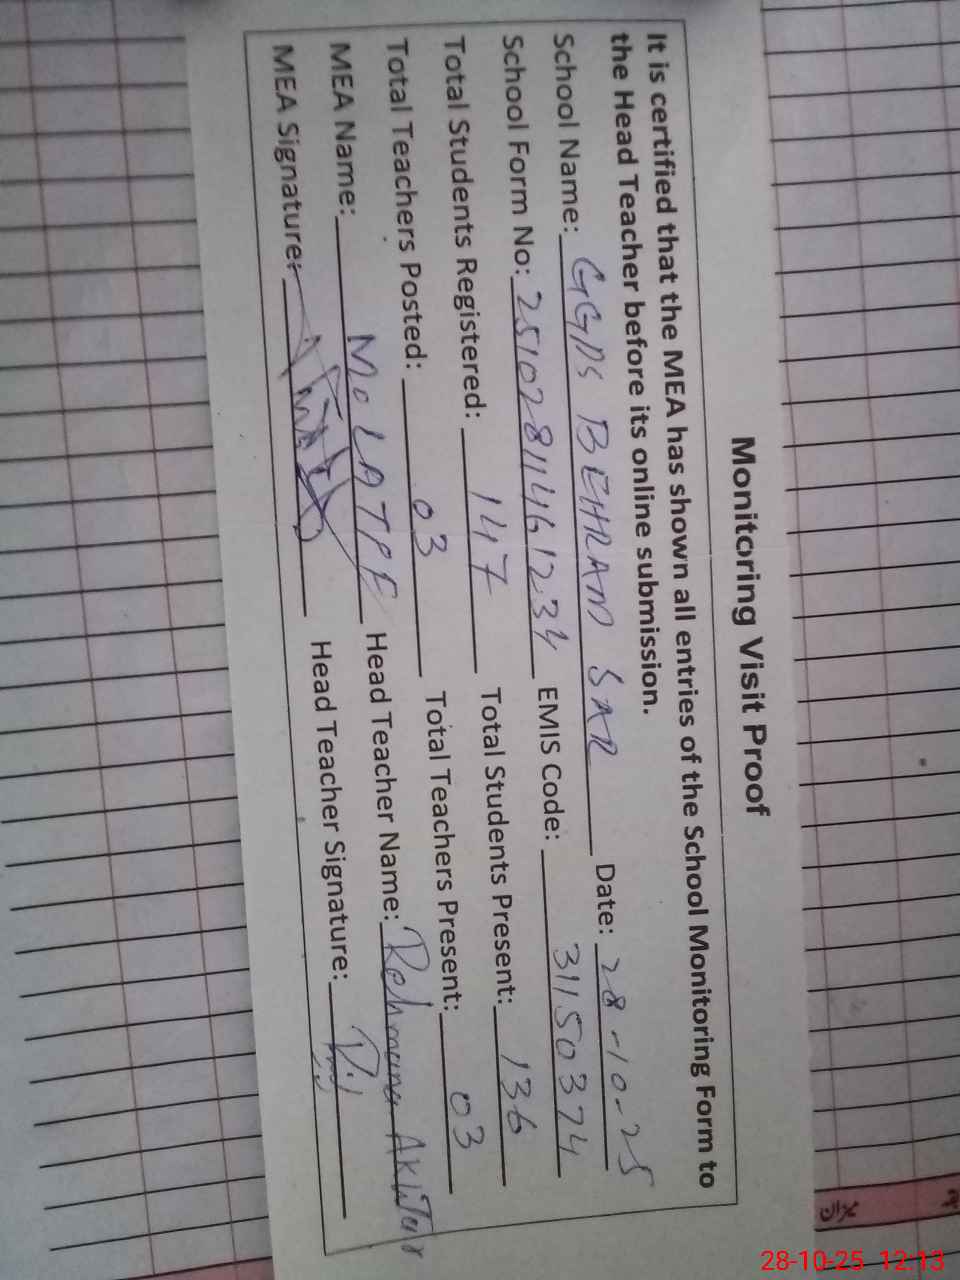 Monitoring Visit Proof
It is certified that the MEA has shown all entries of the School Monitoring Form to
the Head Teacher before its online submission.
School Name: GGPS BEHRAM SAR Date: 28-10-25
School Form No: 251028114461234 EMIS Code: 31150374
Total Students Registered: 147 Total Students Present: 136
Total Teachers Posted: 03 Total Teachers Present: 03
MEA Name: Head Teacher Name: Rehmana Akhtar
MEA Signature: Head Teacher Signature:
28-10-25 12:13